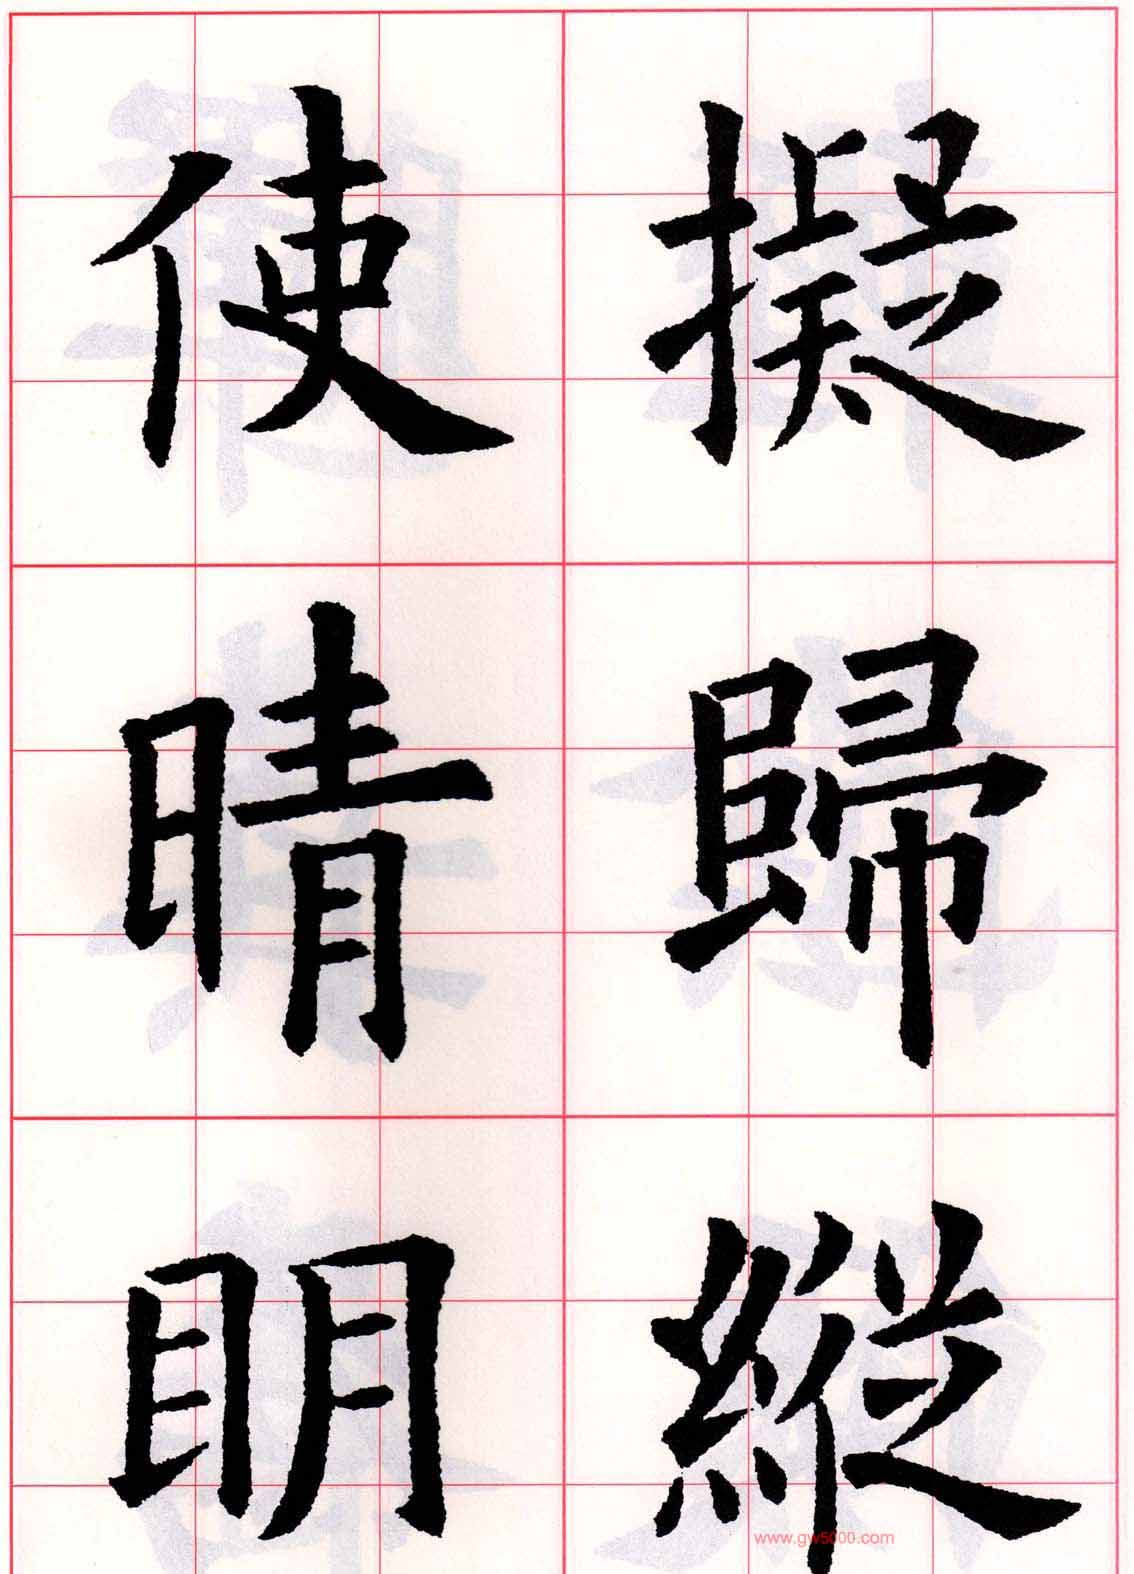 擬歸縱
使晴明
www.gw5000.com